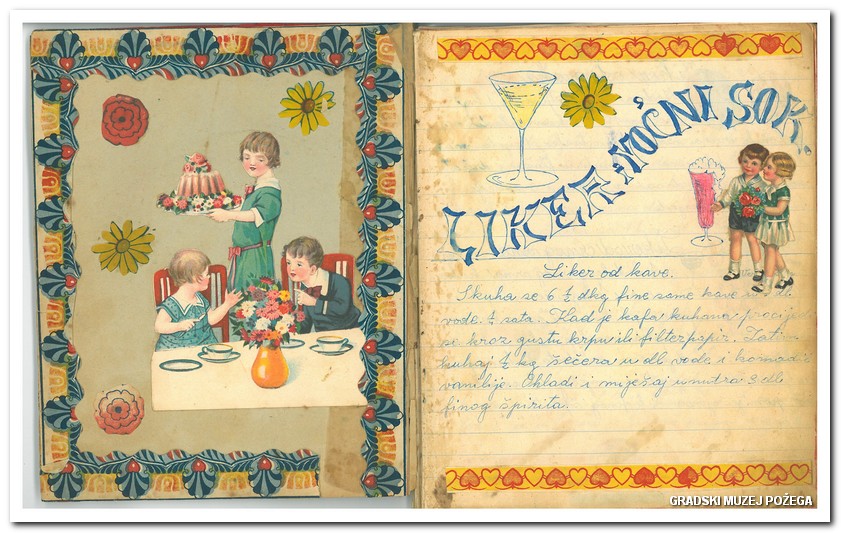 LIKER, VOĆNI SOK.
Liker od kave.
Skuha se 6 ½ dkg fine same kave u dl.
vode ½ sata. Kad je kafa kuhana procijedi
se kroz gustu krpu ili filterpapir. Zatim
kuhaj ½ kg šećera u dl vode i komadić
vanilije. Ohladi i miješaj unutra 3 dl
finog špirita.
GRADSKI MUZEJ POŽEGA